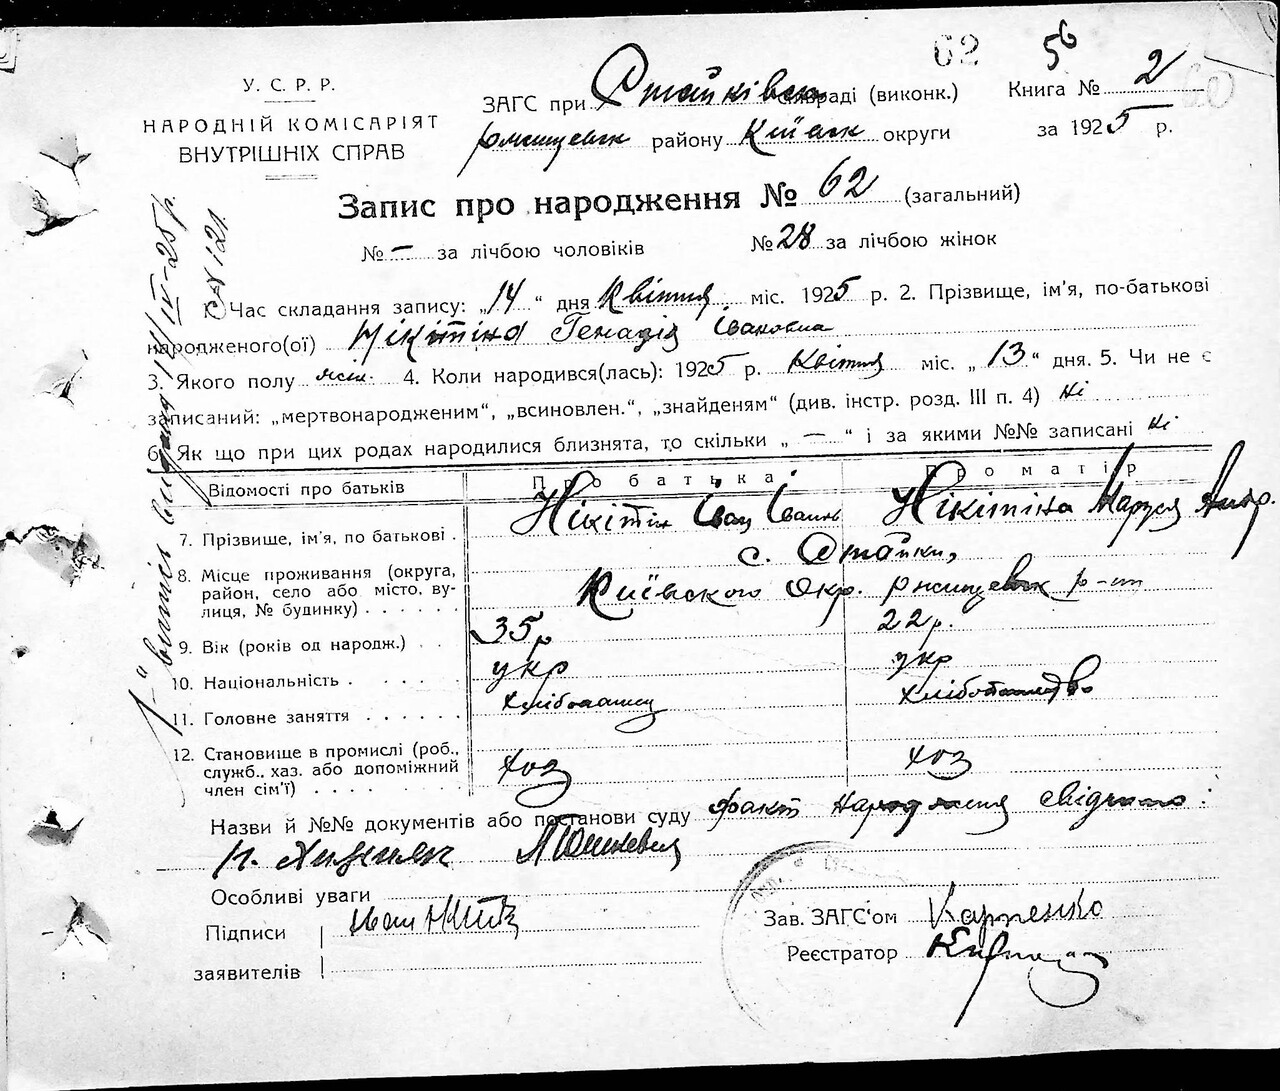 62 56
У. С. Р. Р.
НАРОДНІЙ КОМІСАРІЯТ
ВНУТРІШНІХ СПРАВ
ЗАГС при Стайківськ сільраді (виконк.) Книга № 2
району Київськ округи за 1925 р.
Запис про народження № 62 (загальний)
№ — за лічбою чоловіків № 28 за лічбою жінок
1. Час складання запису: „14“ дня Квітня міс. 1925 р. 2. Прізвище, ім'я, по-батькові
народженого(ої) Нікітіна Генадія Івановна
3. Якого полу жін. 4. Коли народився(лась): 1925 р. Квітня міс. „13“ дня. 5. Чи не є
записаний: „мертвонародженим“, „всиновлен.“, „знайденям“ (див. інстр. розд. III п. 4) ні
6. Як що при цих родах народилися близнята, то скільки „ — “ і за якими №№ записані ні
Відомості про батьків Про батька Про матір
7. Прізвище, ім'я, по батькові . Нікітін Іван Іванов Нікітіна Маруся
8. Місце проживання (округа, район, село або місто, вулиця, № будинку) . . . . . с. Стайки, Київского Окр. Ржищевськ р-ну
9. Вік (років од народж.) . . 35 р 22 р.
10. Національність . . . . . укр укр
11. Головне заняття . . . . . .
12. Становище в промислі (роб., служб., хаз. або допоміжний член сім'ї) . . . . . . . хоз хоз
Назви й №№ документів або постанови суду факт народження свідчило:
Особливі уваги
Підписи Іван
заявителів
Зав. ЗАГС'ом Карпенко
Реєстратор